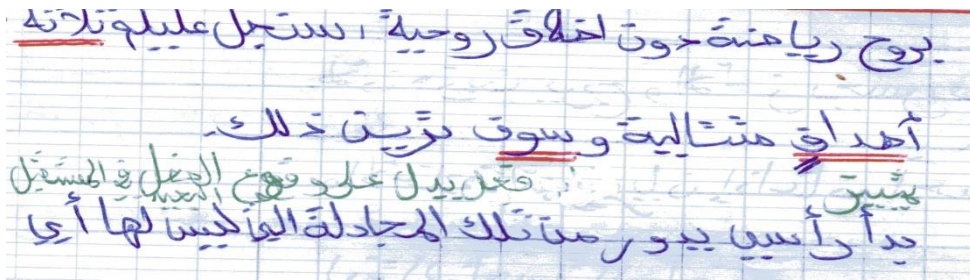 بروح رياضية دون اخلاق روحية ، ستجل عليلم ثلاثة
أهداف متتالية وسوف تريت ذلك.
تمييز فعل يدل على وقوع الفعل في المستقبل
بدأ رأسي يدور من تلك المجادلة التي ليس لها أي